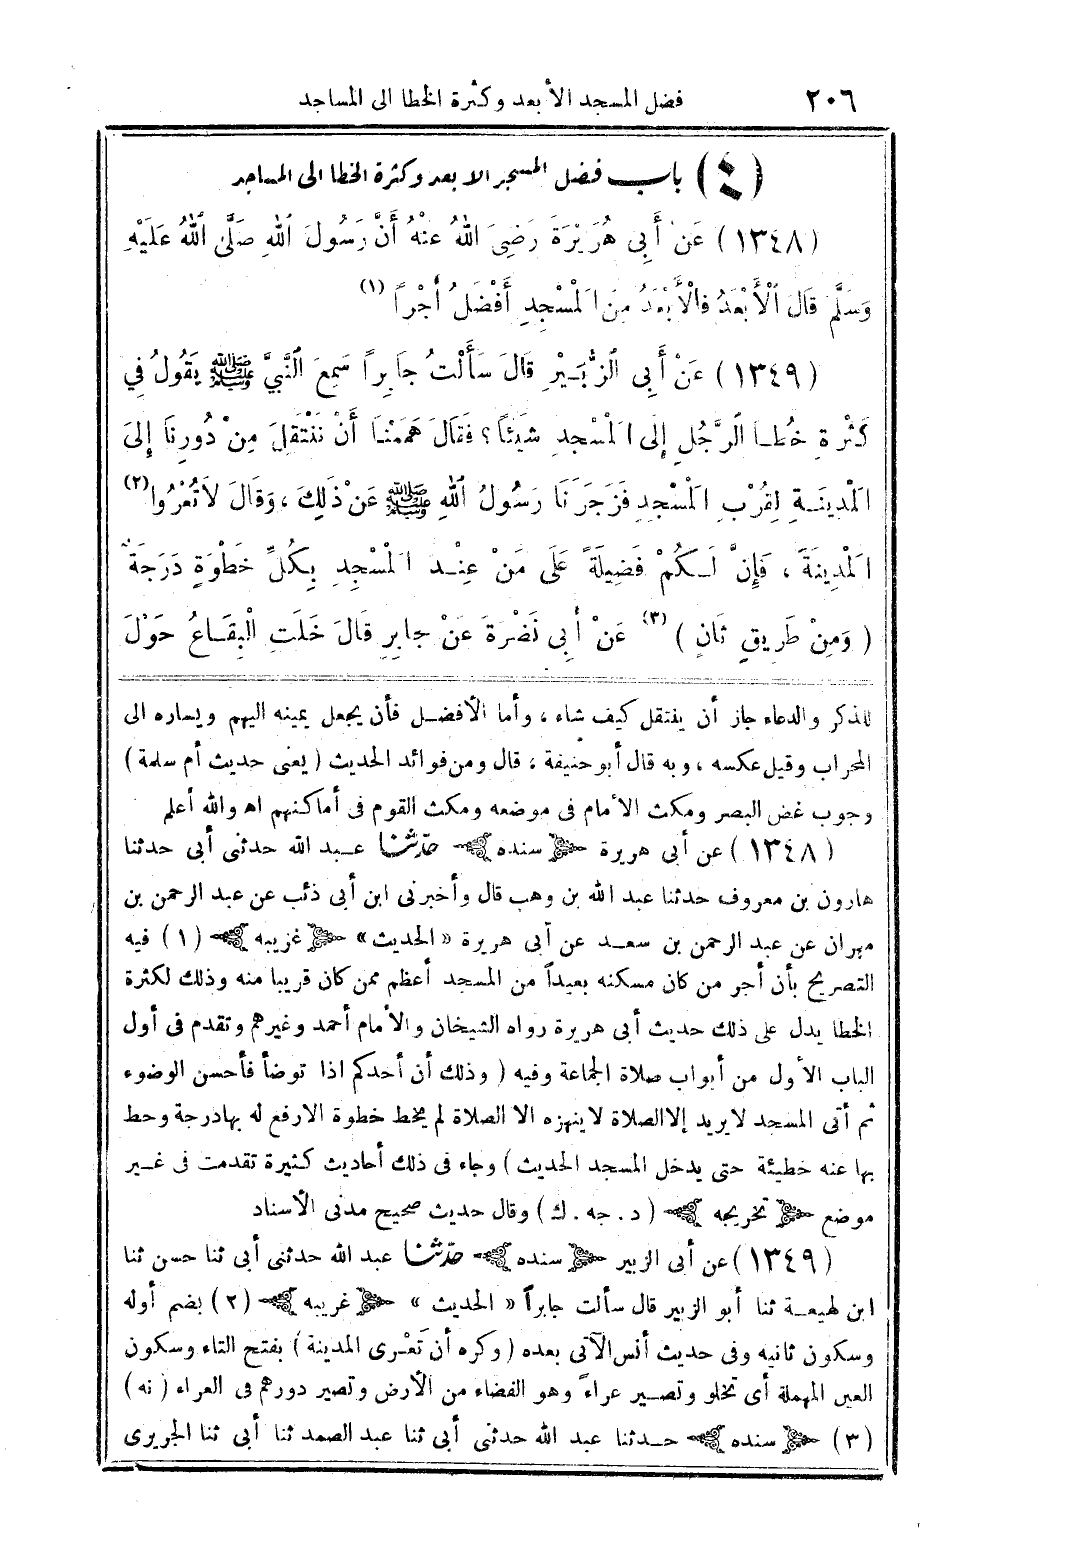 ٢٠٦ فضل المسجد الأبعد وكثرة الخطا الى المساجد
(٤) باب فضل المسجد الابعد وكثرة الخطا الى المساجد
(١٣٤٨) عَنْ أَبِى هُرَيْرَةَ رَضِىَ اللهُ عَنْهُ أَنَّ رَسُولَ اللهِ صَلَّى اللهُ عَلَيْهِ
وَسَلَّمَ قَالَ اَلْأَبْعَدُ فَالْأَبْعَدُ مِنَ الْمَسْجِدِ أَفْضَلُ أَجْرًا (١)
(١٣٤٩) عَنْ أَبِى الزُّبَيْرِ قَالَ سَأَلْتُ جَابِراً سَمِعَ النَّبِىَّ ﷺ يَقُولُ فِي
كَثْرَةِ خُطَا الرَّجُلِ إِلَى الْمَسْجِدِ شَيْئاً؟ فَقَالَ هَمَمْنَا أَنْ نَنْتَقِلَ مِنْ دُورِنَا إِلَى
الْمَدِينَةِ لِقُرْبِ الْمَسْجِدِ فَزَجَرَنَا رَسُولُ اللهِ ﷺ عَنْ ذَلِكَ ، وَقَالَ لَا تُعْرُوا (٢)
الْمَدِينَةَ ، فَإِنَّ لَكُمْ فَضِيلَةً عَلَى مَنْ عِنْدَ الْمَسْجِدِ بِكُلِّ خَطْوَةٍ دَرَجَةً
( وَمِنْ طَرِيقٍ ثَانٍ ) (٣) عَنْ أَبِى نَضْرَةَ عَنْ جَابِرٍ قَالَ خَلَتِ الْبِقَاعُ حَوْلَ
للذكر والدعاء جاز أن ينتقل كيف شاء ، وأما الأفضل فأن يجعل يمينه اليهم ويساره الى
المحراب وقيل عكسه ، وبه قال أبو حنيفة ، قال ومن فوائد الحديث ( يعنى حديث أم سلمة )
وجوب غض البصر ومكث الأمام فى موضعه ومكث القوم فى أماكنهم اه والله أعلم
(١٣٤٨) عن أبى هريرة ﴿ سنده ﴾ حدّثنا عبد الله حدثنى أبى حدثنا
هارون بن معروف حدثنا عبد الله بن وهب قال وأخبرنى ابن أبى ذئب عن عبد الرحمن بن
مهران عن عبد الرحمن بن سعد عن أبى هريرة « الحديث » ﴿ غريبه ﴾ (١) فيه
التصريح بأن أجر من كان مسكنه بعيداً من المسجد أعظم ممن كان قريبا منه وذلك لكثرة
الخطا يدل على ذلك حديث أبى هريرة رواه الشيخان والأمام أحمد وغيرهم وتقدم فى أول
الباب الأول من أبواب صلاة الجماعة وفيه ( وذلك أن أحدكم اذا توضأ فأحسن الوضوء
ثم أتى المسجد لا يريد إلا الصلاة لا ينهزه الا الصلاة لم يخط خطوة الارفع له بها درجة وحط
بها عنه خطيئة حتى يدخل المسجد الحديث ) وجاء فى ذلك أحاديث كثيرة تقدمت فى غير
موضع ﴿ تخريجه ﴾ ( د . جه . ك ) وقال حديث صحيح مدنى الأسناد
(١٣٤٩) عن أبى الزبير ﴿ سنده ﴾ حدّثنا عبد الله حدثنى أبى ثنا حسن ثنا
ابن لهيعة ثنا أبو الزبير قال سألت جابراً « الحديث » ﴿ غريبه ﴾ (٢) بضم أوله
وسكون ثانيه وفى حديث أنس الآتى بعده ( وكره أن تَعْرى المدينة ) بفتح التاء وسكون
العين المهملة أى تخلو وتصير عراءً وهو الفضاء من الأرض وتصير دورهم فى العراء ( نه )
(٣) ﴿ سنده ﴾ حدثنا عبد الله حدثنى أبى ثنا عبد الصمد ثنا أبى ثنا الجريرى